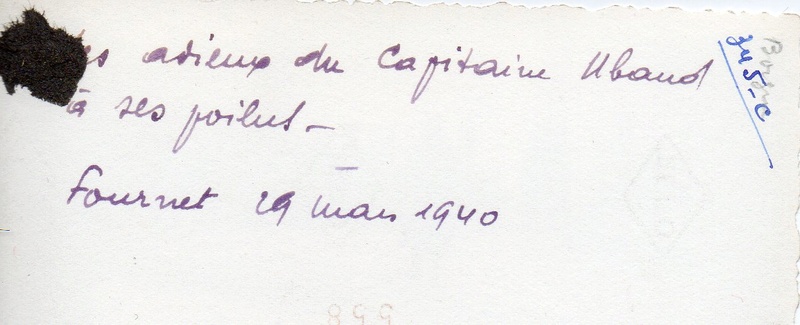 es adieux du Capitaine Ubaud
à ses poilus_
Fournet 29 mars 1940
558